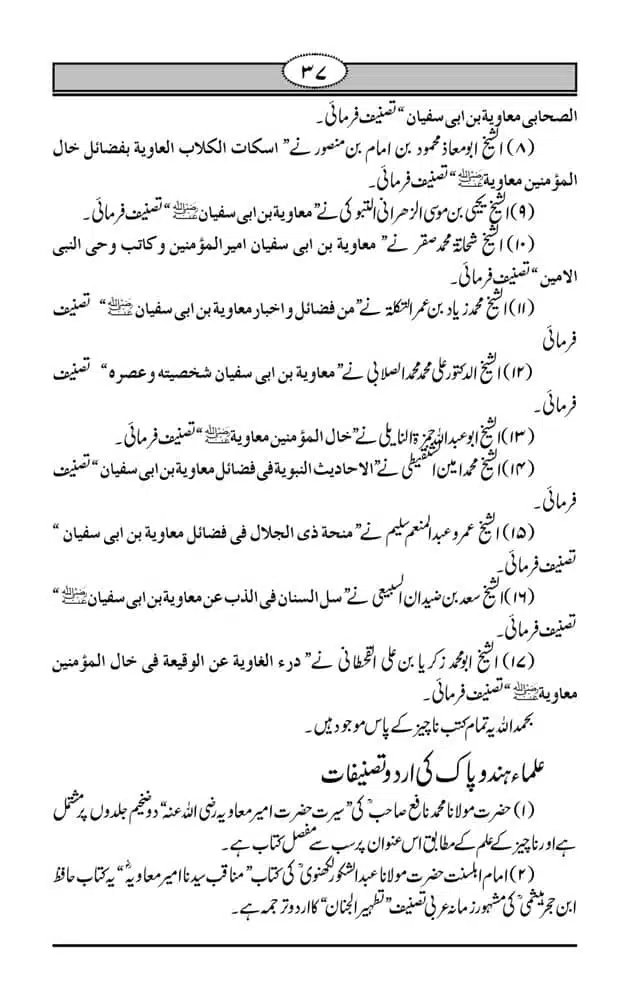 ۳۷
الصحابی معاویة بن ابی سفیان“ تصنیف فرمائی۔
(۸) الشیخ ابومعاذ محمود بن امام بن منصور نے ”اسکات الکلاب العاویة بفضائل خال
المؤمنین معاویة ﷺ“ تصنیف فرمائی۔
(۹) الشیخ یحیی بن موسی الزهرانی التبوکی نے ”معاویة بن ابی سفیان ﷺ“ تصنیف فرمائی۔
(۱۰) الشیخ شحاتة محمد صقر نے ”معاویة بن ابی سفیان امیر المؤمنین وکاتب وحی النبی
الامین“ تصنیف فرمائی۔
(۱۱) الشیخ محمد زیاد بن عمر التکلة نے ”من فضائل و اخبار معاویة بن ابی سفیان ﷺ“ تصنیف
فرمائی
(۱۲) الشیخ الدکتور علی محمد محمد الصلابی نے ”معاویة بن ابی سفیان شخصیته وعصره“ تصنیف
فرمائی۔
(۱۳) الشیخ ابوعبداللہ حمزۃ النایلی نے ”خال المؤمنین معاویة ﷺ“ تصنیف فرمائی۔
(۱۴) الشیخ محمد امین الشنقیطی نے ”الاحادیث النبویة فی فضائل معاویة بن ابی سفیان“ تصنیف
فرمائی۔
(۱۵) الشیخ عمرو عبدالمنعم سلیم نے ”منحة ذی الجلال فی فضائل معاویة بن ابی سفیان“
تصنیف فرمائی۔
(۱۶) الشیخ سعد بن ضیدان السبیعی نے ”سل السنان فی الذب عن معاویة بن ابی سفیان ﷺ“
تصنیف فرمائی۔
(۱۷) الشیخ ابومحمد زکریا بن علی القحطانی نے ”درء الغاویة عن الوقیعة فی خال المؤمنین
معاویة ﷺ“ تصنیف فرمائی۔
بحمد اللہ یہ تمام کتب ناچیز کے پاس موجود ہیں۔
علماء ہند و پاک کی اردو تصنیفات
(۱) حضرت مولانا محمد نافع صاحبؒ کی ”سیرت حضرت امیر معاویہ رضی اللہ عنہ“ دو ضخیم جلدوں پر مشتمل
ہے اور ناچیز کے علم کے مطابق اس عنوان پر سب سے مفصل کتاب ہے۔
(۲) امام اہلسنت حضرت مولانا عبدالشکور لکھنویؒ کی کتاب ”مناقب سیدنا امیر معاویہؓ“ یہ کتاب حافظ
ابن حجر ہیثمیؒ کی مشہور زمانہ عربی تصنیف ”تطہیر الجنان“ کا اردو ترجمہ ہے۔